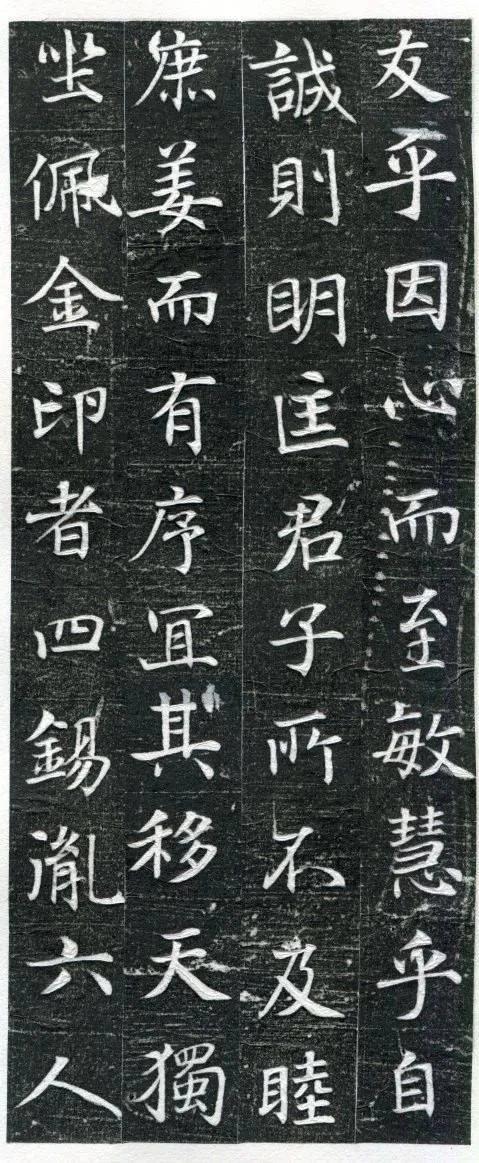 友乎因心而至敏慧乎自
誠則明匡君子所不及睦
庶姜而有序宜其移天獨
坐佩金印者四錫胤六人